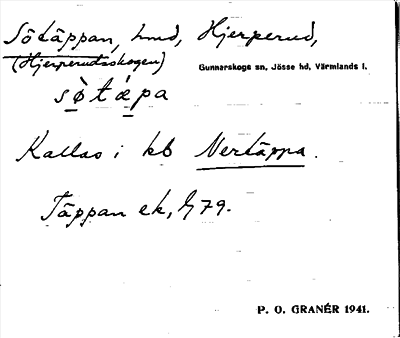 Sötäppan, hmd, Hjerperud,
(Hjerperudsskogen) Gunnarskogs sn, Jösse hd, Värmlands l.
sö̀tæpa
Kallas i kb Nertäppa.
Täppan ek, 479.
P. O. GRANÉR 1941.